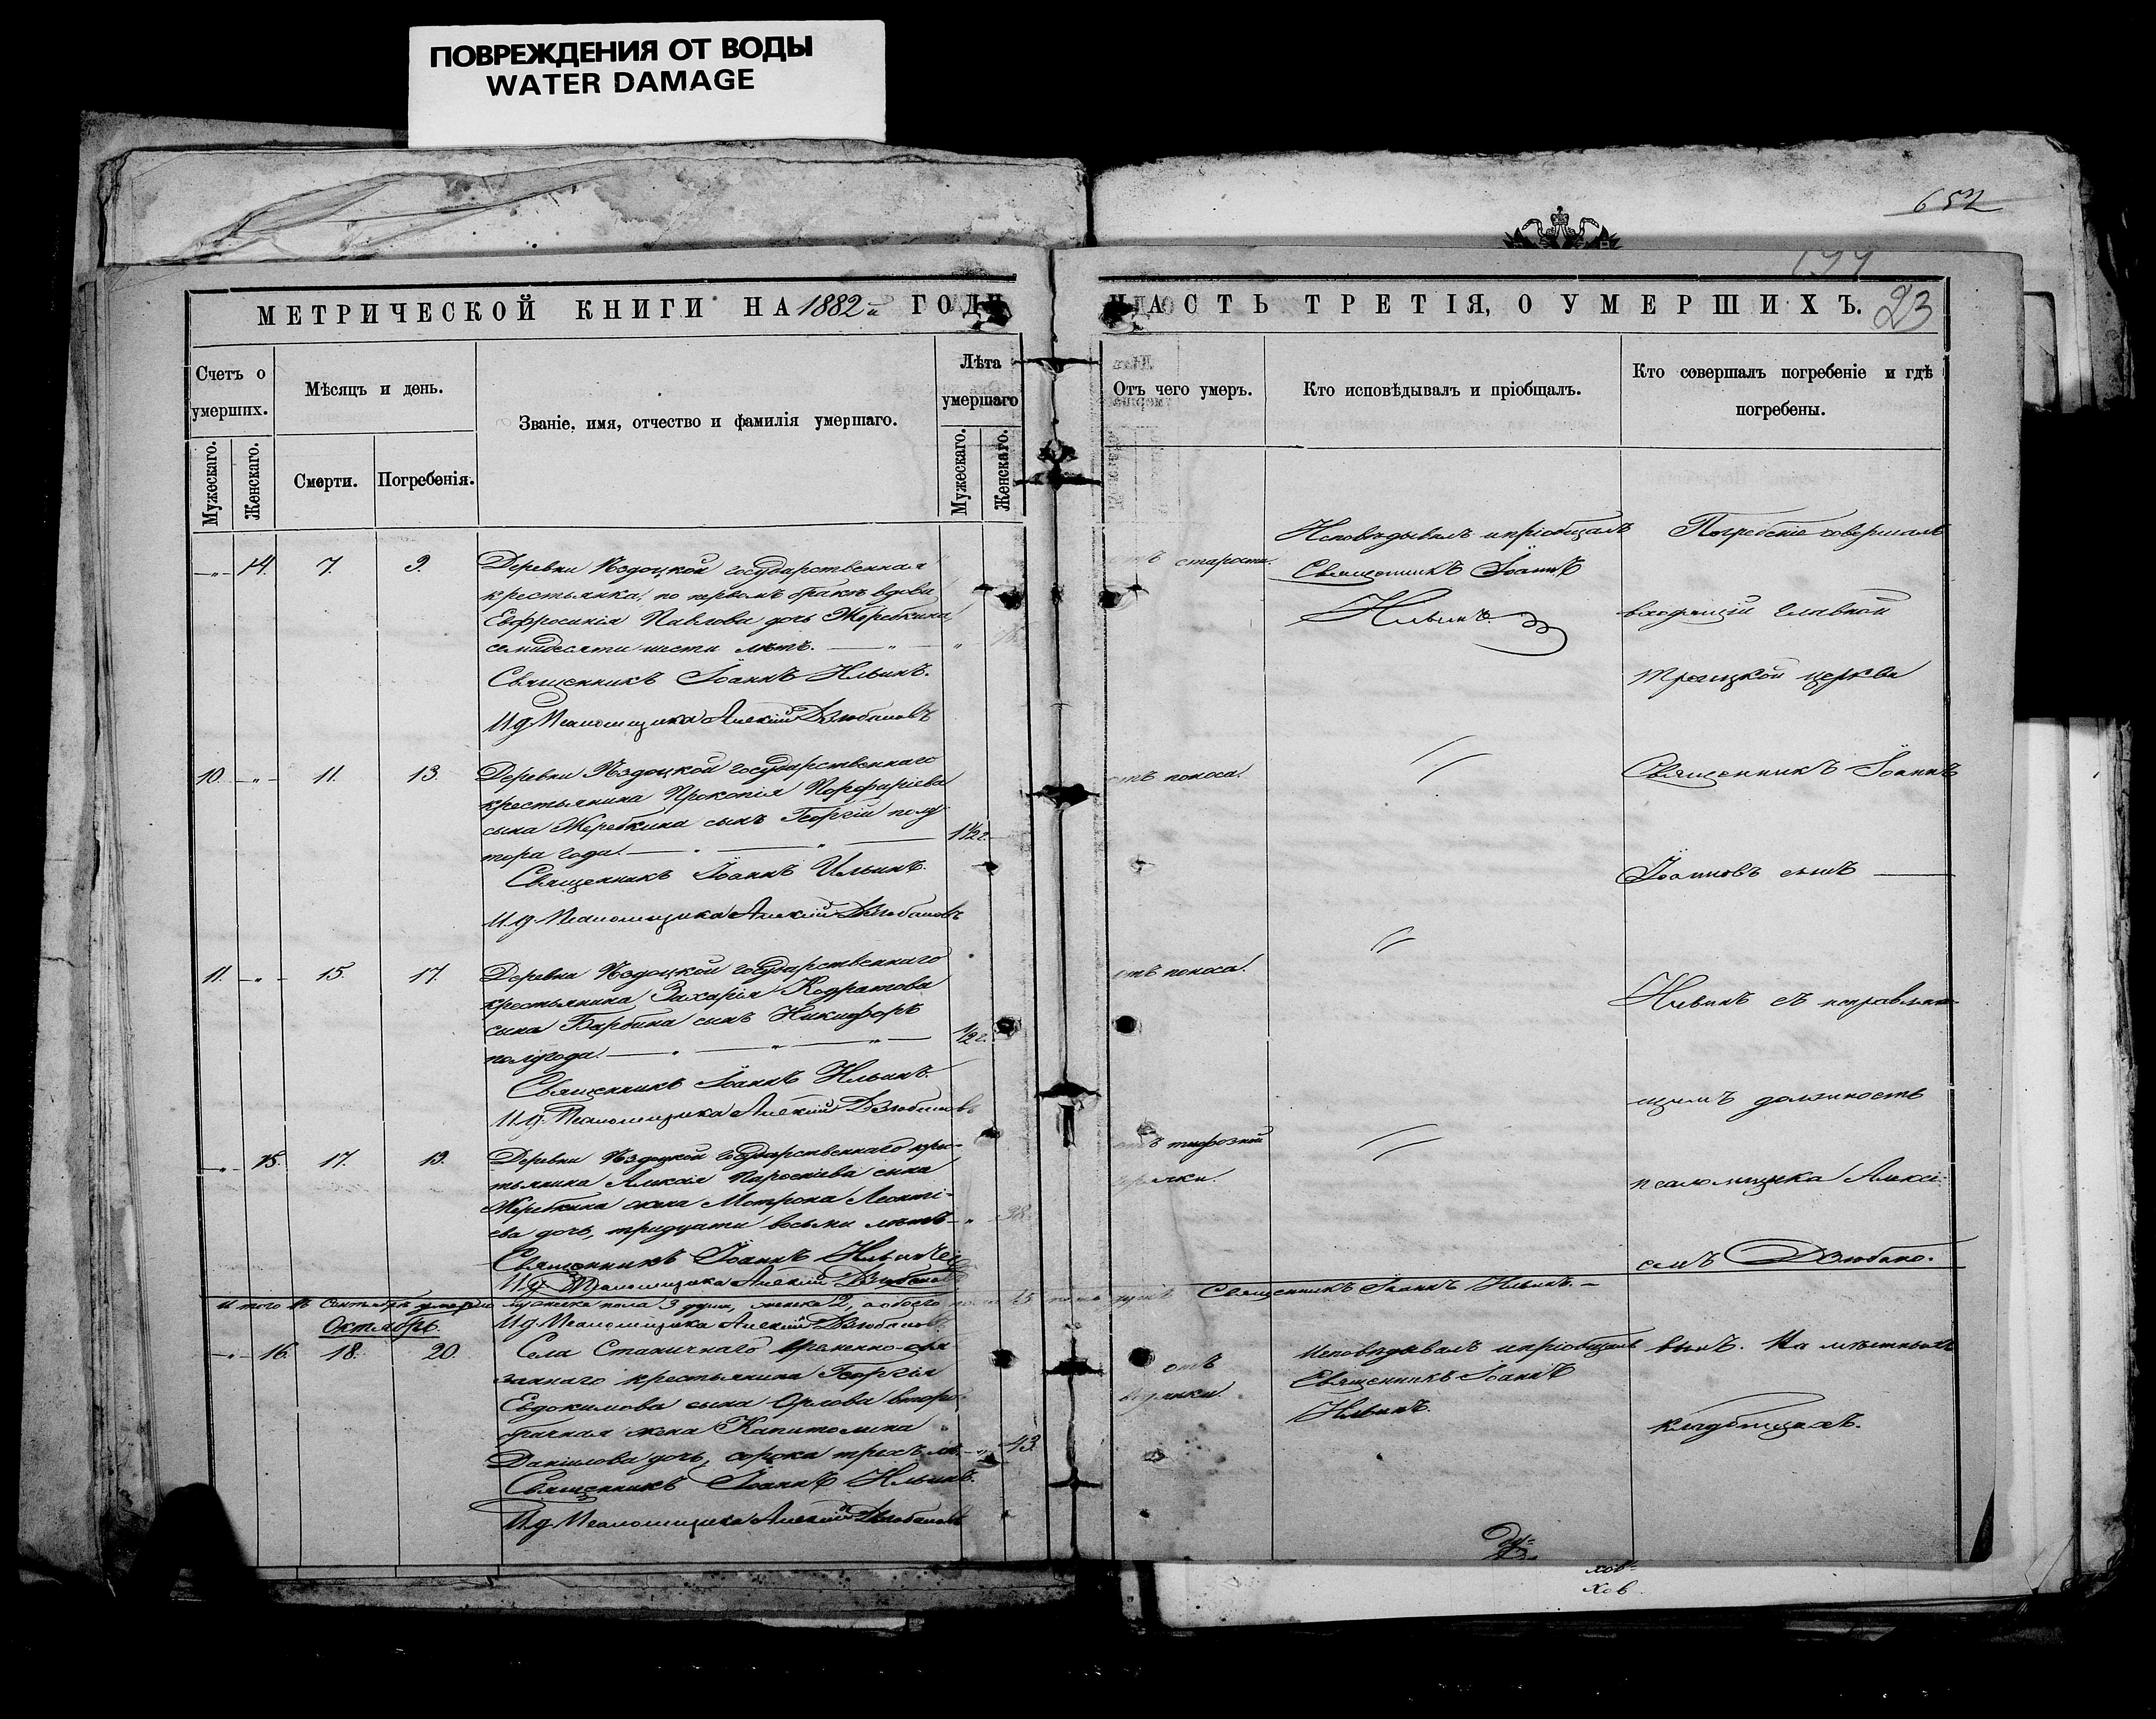 ПОВРЕЖДЕНИЯ ОТ ВОДЫ
WATER DAMAGE
652
МЕТРИЧЕСКОЙ КНИГИ НА 1882й ГОДЪ
Счетъ о умершихъ.
Мѣсяцъ и день.
Званіе, имя, отчество и фамилія умершаго.
Лѣта умершаго
Мужескаго.
Женскаго.
Смерти.
Погребенія.
Мужескаго.
Женскаго.
14. 7. 9. Деревни государственная
крестьянка, по первомъ бракѣ вдова
Евфросинія Павлова дочь Жеребкина,
семидесяти шести лѣтъ.
Священникъ Іоаннъ Ильинъ.
И.д. Псаломщика Алексій Дзюбановъ
10. 11. 13. Деревни государственнаго
крестьянина Прокопія Порфиріева
сына Жеребкина сынъ Георгій полу-
тора года. 1½ г.
Священникъ Іоаннъ Ильинъ.
И.д. Псаломщика Алексій Дзюбановъ
11. 15. 17. Деревни государственнаго
крестьянина Захарія Кодратова
сына Барбина сынъ Никифоръ
полугода. ½ г.
Священникъ Іоаннъ Ильинъ.
И.д. Псаломщика Алексій Дзюбановъ
15. 17. 19. Деревни государственнаго крес-
тьянина сына
Жеребкина жена Мотрона Леонті-
ева дочь, тридцати восьми лѣтъ 38.
Священникъ Іоаннъ Ильинъ
И.д. Псаломщика Алексій Дзюбановъ
Итого въ Сентябрѣ умерло мужеска пола 3 души, женска 2, а обоего
И.д. Псаломщика Алексій Дзюбановъ
Октябрь.
16. 18. 20. Села Станичнаго временно-обя-
заннаго крестьянина Георгія
Евдокимова сына Орлова второ-
брачная жена Капитолина
Данилова дочь, сорока трехъ лѣ. 43.
Священникъ Іоаннъ Ильинъ.
И.д. Псаломщика Алексій Дзюбановъ
ЧАСТЬ ТРЕТІЯ, О УМЕРШИХЪ. 23
Отъ чего умеръ.
Кто исповѣдывалъ и пріобщалъ.
Кто совершалъ погребеніе и гдѣ погребены.
отъ старости.
Исповѣдывалъ и пріобщалъ
Священникъ Іоаннъ
Ильинъ.
отъ поноса. //
отъ поноса. //
отъ тифозной
горячки. //
Священникъ Іоаннъ Ильинъ.
отъ
водянки.
Исповѣдывалъ и пріобщалъ
Священникъ Іоаннъ
Ильинъ.
Погребеніе совершалъ
главной
Троицкой церкви
Священникъ Іоаннъ
Іоанновъ сынъ
Ильинъ съ исправляю-
щимъ должность
псаломщика Алексі-
емъ Дзюбано-
вымъ. На мѣстныхъ
кладбищахъ.
хов